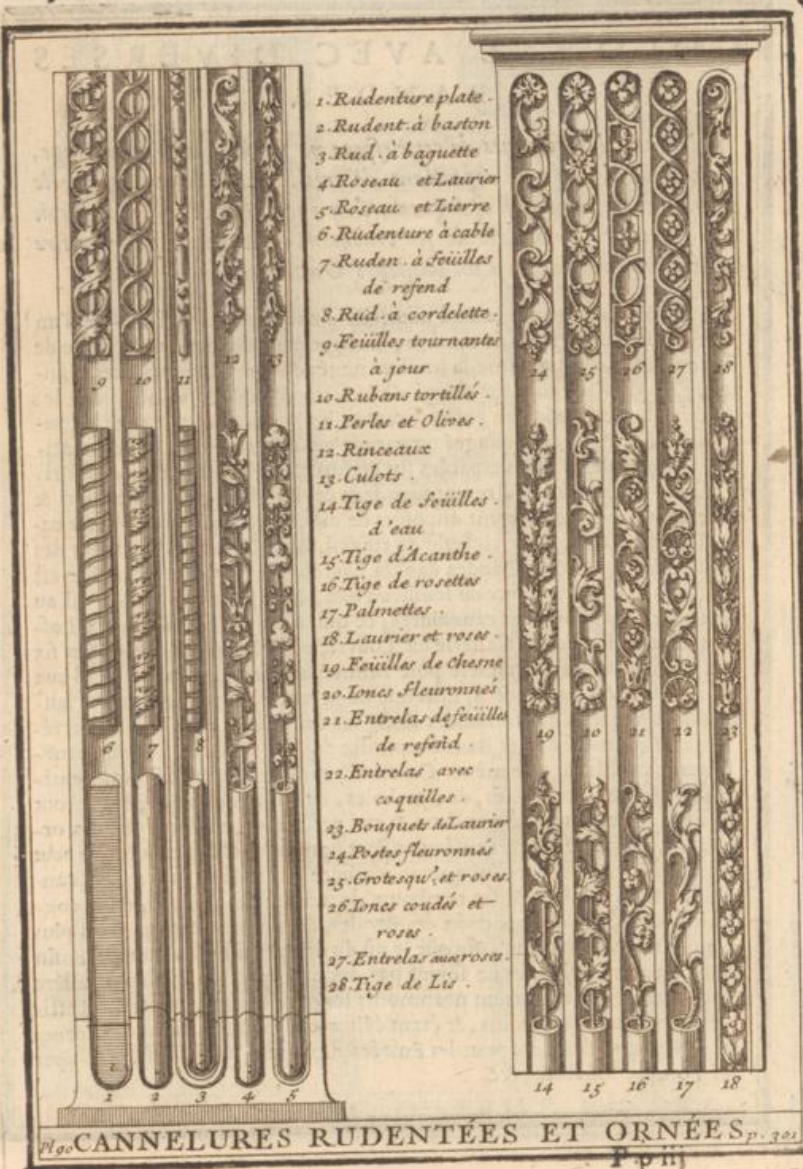 1. Rudenture plate.
2. Rudent. à baston
3. Rud. à baguette
4. Roseau et Laurier
5. Roseau et Lierre
6. Rudenture à cable
7. Ruden. à feüilles
de refend
8. Rud. à cordelette.
9. Feüilles tournantes
à jour
10. Rubans tortillés.
11. Perles et Olives.
12. Rinceaux
13. Culots.
14. Tige de feüilles
d'eau
15. Tige d'Acanthe.
16. Tige de rosettes
17. Palmettes.
18. Laurier et roses.
19. Feüilles de Chesne
20. Ioncs fleuronnés
21. Entrelas de feüilles
de refend.
22. Entrelas avec
coquilles.
23. Bouquets de Laurier
24. Postes fleuronnés
25. Grotesqu.^s et roses.
26. Ioncs coudés et
roses.
27. Entrelas avec roses.
28. Tige de Lis.
9 10 11 12 13
6 7 8
1 2 3 4 5
24 25 26 27 28
19 20 21 22 23
14 15 16 17 18
Pl 90 CANNELURES RUDENTÉES ET ORNÉES p. 301
P p iij